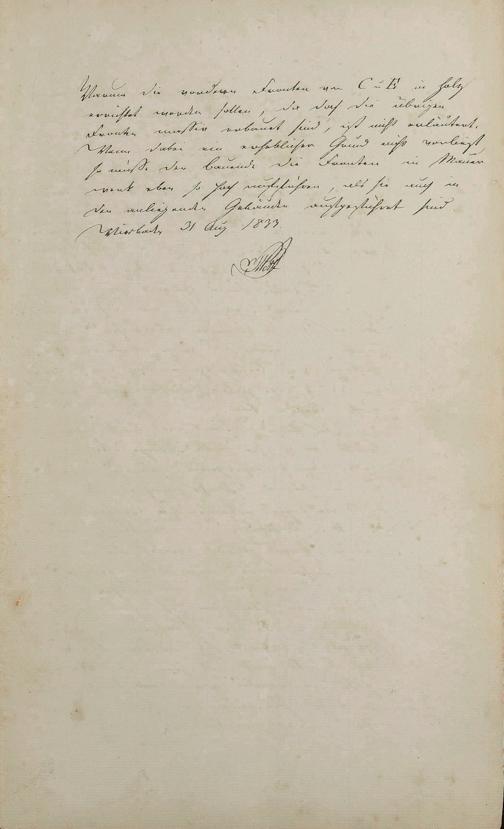 Warum die vorderen Fronten von C u B in Holz
errichtet werden sollen, da doch die übrigen
Fronten massiv erbauet sind, ist nicht erläutert.
Wenn dabei ein erheblicher Grund nicht vorliegt
so müßte der bauende die Fronten in Mauer
werk eben so hoch aufführen, als sie auch in
den anliegenden Gebäuden ausgeführet sind
Wiesbaden 31 Aug 1833